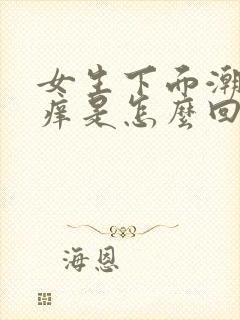 女生下而潮
痒是怎麼回
海恩